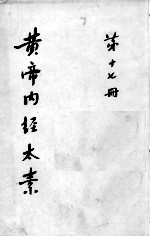 第十七册
黄帝内经太素